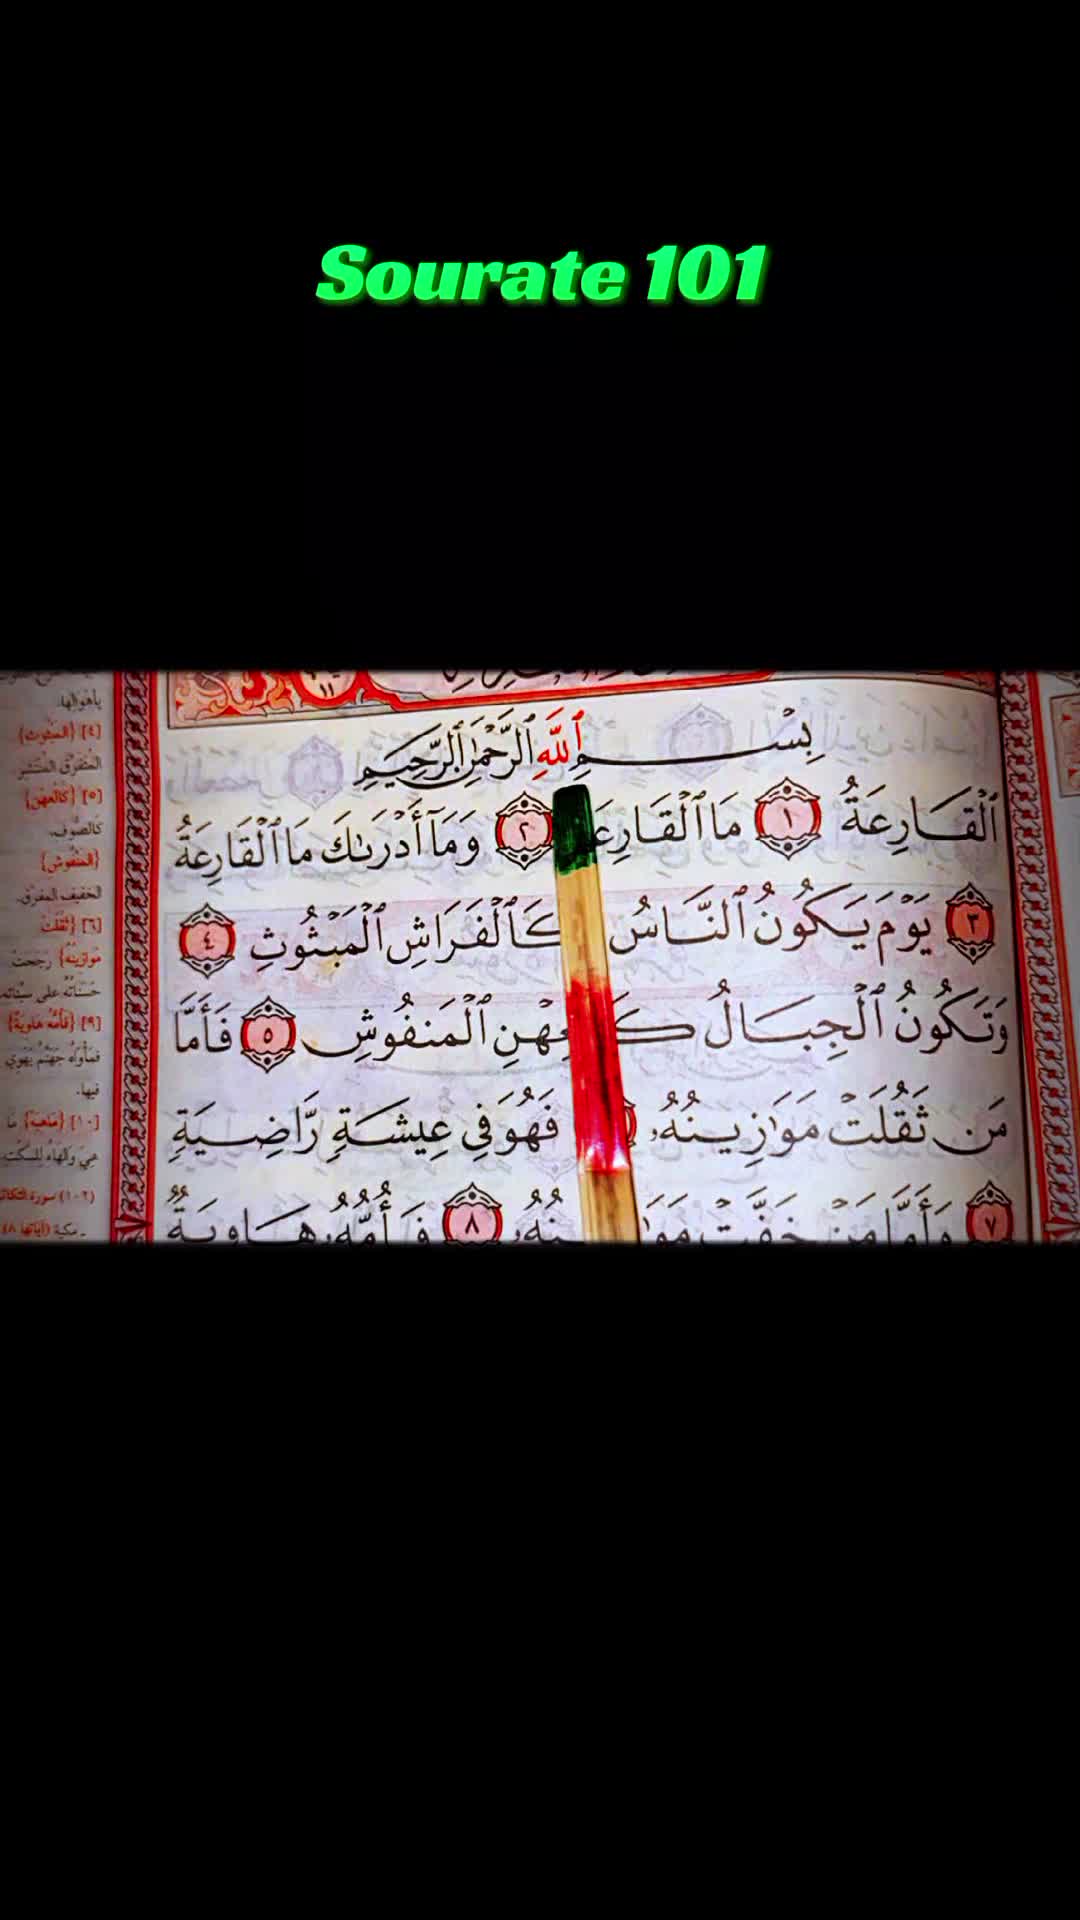 Sourate 101
بِسْمِ ٱللَّهِ ٱلرَّحْمَٰنِ ٱلرَّحِيمِ
ٱلْقَارِعَةُ ١ مَا ٱلْقَارِعَ ٢ وَمَآ أَدْرَىٰكَ مَا ٱلْقَارِعَةُ
٣ يَوْمَ يَكُونُ ٱلنَّاسُ كَٱلْفَرَاشِ ٱلْمَبْثُوثِ ٤
وَتَكُونُ ٱلْجِبَالُ كَٱلْعِهْنِ ٱلْمَنفُوشِ ٥ فَأَمَّا
مَن ثَقُلَتْ مَوَٰزِينُهُۥ فَهُوَ فِى عِيشَةٍ رَّاضِيَةٍ
٧ وَأَمَّا مَنْ خَفَّتْ ٨ فَأُمُّهُۥ هَاوِيَةٌ
بأهوالها.
[٤] {المَبْثُوثِ}
المُتَفَرِّقِ المُنْتَشِرِ
[٥] {كَالْعِهْنِ}
كالصُّوف.
{المَنْفُوشِ}
الخفيف المفرق.
[٦] {ثَقُلَتْ
مَوَازِينُهُ} رجحت
حَسَنَاتُهُ على
[٩] {فَأُمُّهُ هَاوِيَةٌ}
فمأواه جَهَنَّمُ يهوي
فيها.
[١٠] {مَا هِيَهْ} ما
هي والهاءُ للسكت.
(١٠٢) سورة التكاثر
ـ مكية (آياتها ٨)